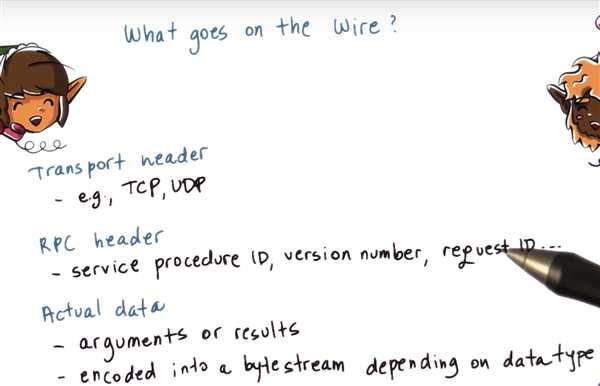 What goes on the Wire?
Transport header
- e.g., TCP, UDP
RPC header
- service procedure ID, version number, request ID...
Actual data
- arguments or results
- encoded into a bytestream depending on data type